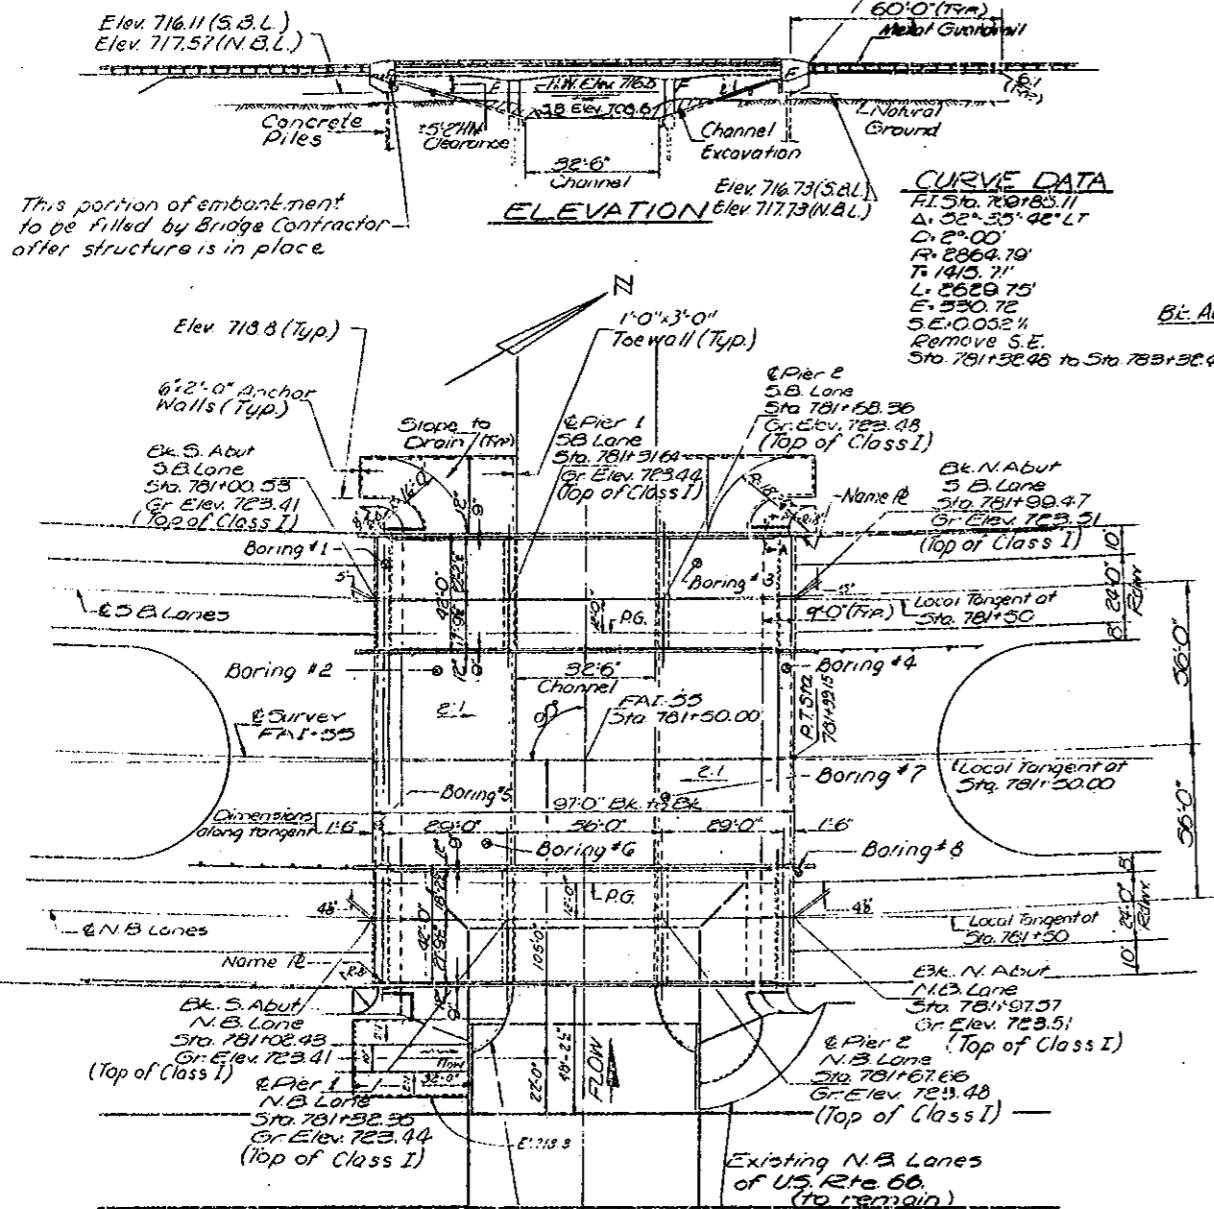 Elev. 716.11 (S.B.L.)
Elev. 717.57 (N.B.L.)
60'-0" (Typ.)
Metal Guardrail
H.W. Elev. 716.5
Concrete
Piles
Clearance
32'-6"
Channel
Channel
Excavation
Natural
Ground
Elev. 716.73 (S.B.L.)
Elev. 717.73 (N.B.L.)
ELEVATION
This portion of embankment
to be filled by Bridge Contractor
after structure is in place
CURVE DATA
P.I. Sta. 769+85.11
Δ= 52°-35'-42" LT
D= 2°-00'
R= 2864.79'
T= 1415.71'
L= 2629.75'
E= 330.72
S.E.= 0.052%
Remove S.E.
Sta. 781+32.48 to Sta. 783+32.4
N
Elev. 718.8 (Typ.)
1'-0"x3'-0"
Toewall (Typ.)
Anchor
Walls (Typ.)
Slope to
Drain (Typ.)
Bk. S. Abut
S.B. Lane
Sta. 781+00.53
Gr. Elev. 723.41
(Top of Class I)
₵ Pier 1
S.B. Lane
Sta. 781+31.64
Gr. Elev. 723.44
(Top of Class I)
₵ Pier 2
S.B. Lane
Sta. 781+68.36
Gr. Elev. 723.48
(Top of Class I)
Bk. N. Abut
S.B. Lane
Sta. 781+99.47
Gr. Elev. 723.51
(Top of Class I)
Name ₧
Boring #1
Boring #3
₵ S.B. Lanes
P.G.
9'-0" (Typ.)
Local Tangent at
Sta. 781+50
10'
24'-0"
8'
56'-0"
Boring #2
Boring #4
32'-6"
Channel
2:1
FAI-55
Sta. 781+50.00
P.T. Sta.
781+99.15
₵ Survey
FAI-55
2:1
Boring #7
Local Tangent at
Sta. 781+50.00
Boring #5
97'-0" Bk. to Bk.
Dimensions
along tangent
1'-6"
29'-0"
36'-0"
29'-0"
1'-6"
56'-0"
Boring #6
Boring #8
P.G.
12'-0"
8'
24'-0"
10'
₵ N.B. Lanes
42'-0"
105'-0"
Local Tangent at
Sta. 781+50
Name ₧
Bk. S. Abut
N.B. Lane
Sta. 781+02.43
Gr. Elev. 723.41
(Top of Class I)
Bk. N. Abut
N.B. Lane
Sta. 781+97.57
Gr. Elev. 723.51
(Top of Class I)
₵ Pier 1
N.B. Lane
Sta. 781+32.36
Gr. Elev. 723.44
(Top of Class I)
22'-0"
FLOW
₵ Pier 2
N.B. Lane
Sta. 781+67.66
Gr. Elev. 723.48
(Top of Class I)
El. 718.8
Existing N.B. Lanes
of U.S. Rte. 66.
(to remain)